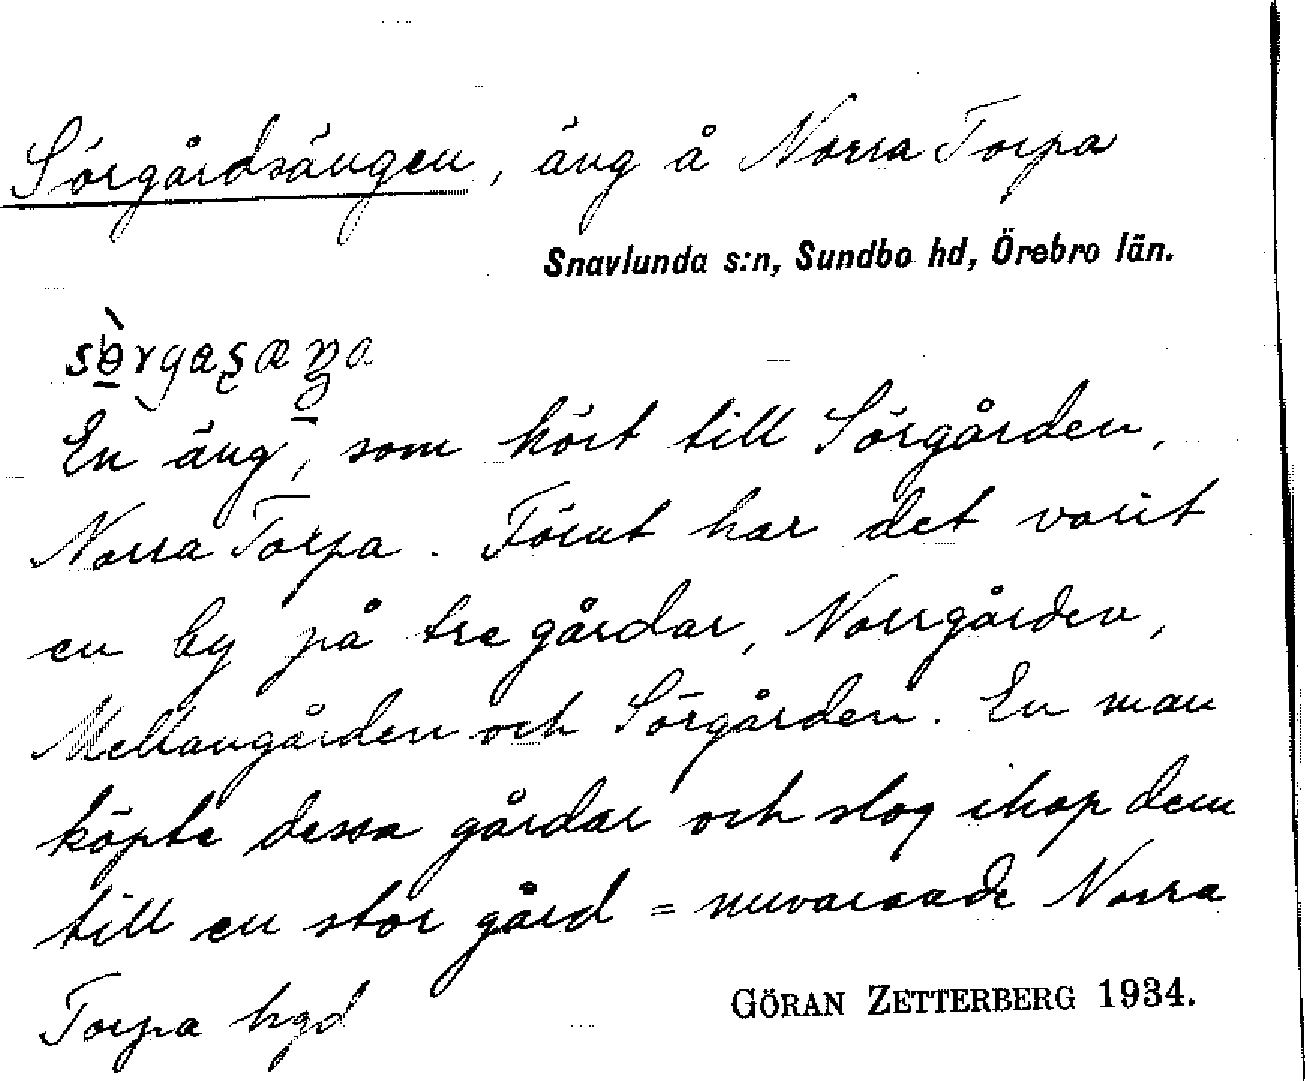 Sörgårdsängen, äng å Norra Torpa
Snavlunda s:n, Sundbo hd, Örebro län.
En äng, som hört till Sörgården,
Norra Torpa. Förut har det varit
en by på tre gårdar, Norrgården,
Mellangården och Sörgården. En man
köpte dessa gårdar och slog ihop dem
till en stor gård = nuvarande Norra
Torpa hgd
GÖRAN ZETTERBERG 1934.